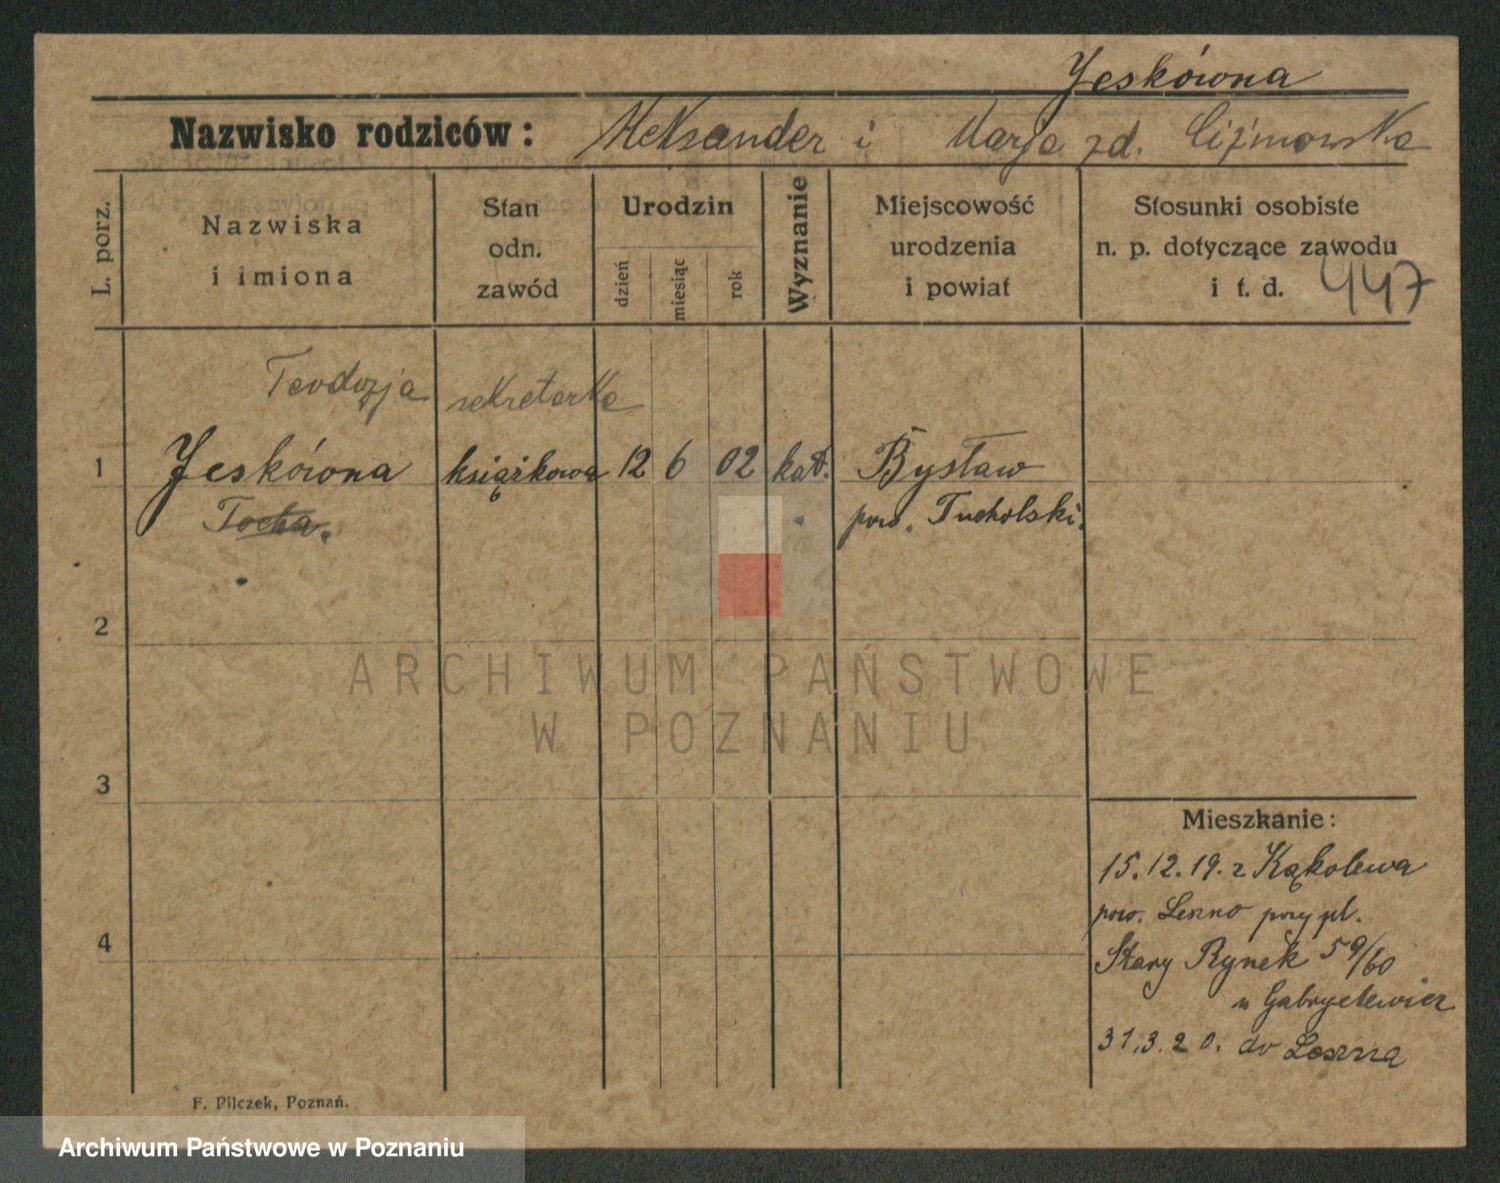 Jeskówna
Nazwisko rodziców: Aleksander i Marja zd. Ciżmowska
L. porz.
Nazwiska
i imiona
Stan
odn.
zawód
Urodzin
dzień
miesiąc
rok
Wyznanie
Miejscowość
urodzenia
i powiat
Stosunki osobiste
n. p. dotyczące zawodu
i t. d.
447
Teodozja sekretarka
1 Jeskówna książkowa 12 6 02 kat. Bysław
Tocha. pow. Tucholski.
2
3
4
Mieszkanie:
15.12.19. z Kąkolewa
pow. Leszno przy pl.
Stary Rynek 59/60
u Gabryelewicz
31.3.20. do Leszna
F. Pilczek, Poznań.
ARCHIWUM PAŃSTWOWE
W POZNANIU
Archiwum Państwowe w Poznaniu